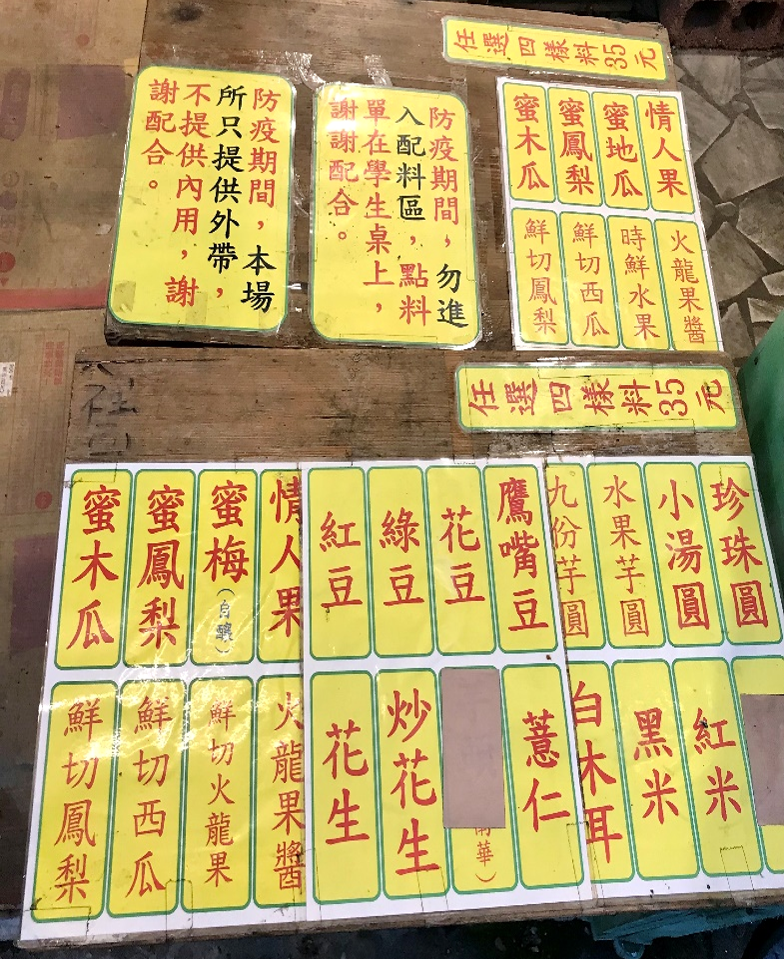 任選四樣料35元
防疫期間，本場
所只提供外帶，
不提供內用，謝
謝配合。
防疫期間，勿進
入配料區，點料
單在學生桌上，
謝謝配合。
情人果
蜜地瓜
蜜鳳梨
蜜木瓜
火龍果醬
時鮮水果
鮮切西瓜
鮮切鳳梨
任選四樣料35元
珍珠圓
小湯圓
水果芋圓
九份芋圓
鷹嘴豆
花豆
綠豆
紅豆
情人果
蜜梅（自釀）
蜜鳳梨
蜜木瓜
紅米
黑米
白木耳
薏仁
華）
炒花生
花生
火龍果醬
鮮切火龍果
鮮切西瓜
鮮切鳳梨